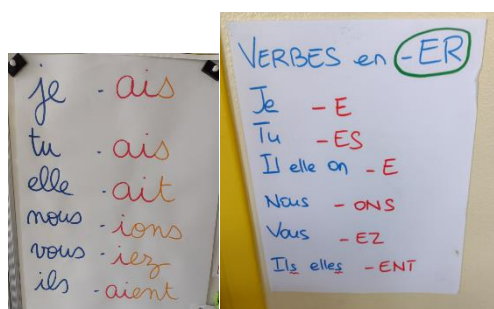 je - ais
tu - ais
elle - ait
nous - ions
vous - iez
ils - aient
VERBES en -ER
Je - E
Tu - ES
Il elle on - E
Nous - ONS
Vous - EZ
Ils elles - ENT